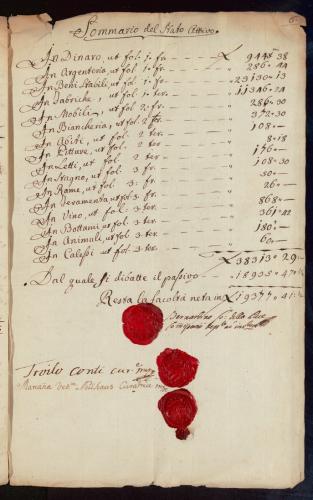 6.
Sommario del Stato Attivo.
In Dinaro, ut fol. 1. fa £ 944 38
In Argenteria, ut fol. 1. fa " 286 44
In Beni Stabili, ut fol. 1. fa " 23130 13
In Fabriche, ut fol. 1. ter. " 11346 24
In Mobili, ut fol. 2. fr. " 286 30
In Biancheria, ut fol. 2. fr. " 372 30
In Abiti, ut fol. 2. ter. " 108 —
In Pitture, ut fol. 2. ter. " 8 18
In Letti, ut fol. 2. ter " 176 —
In Stagno, ut fol. 3. fr. " 108 30
In Rame, ut fol. 3. fr. " 30 —
In Feramenta, ut fol. 3. fr. " 26 —
In Vino, ut fol. 3. ter. " 868 —
In Bottami, ut fol. 3. ter. " 361 22
In Animali, ut fol. 3. ter. " 180 —
In Calessi, ut fol. 3. ter. " 60 —
£ 38313 29
Dal quale si dibatte il passivo — " 18935 47
Resta la facoltà neta in £ 19377 41
Bernardino
Troilo Conti cur.